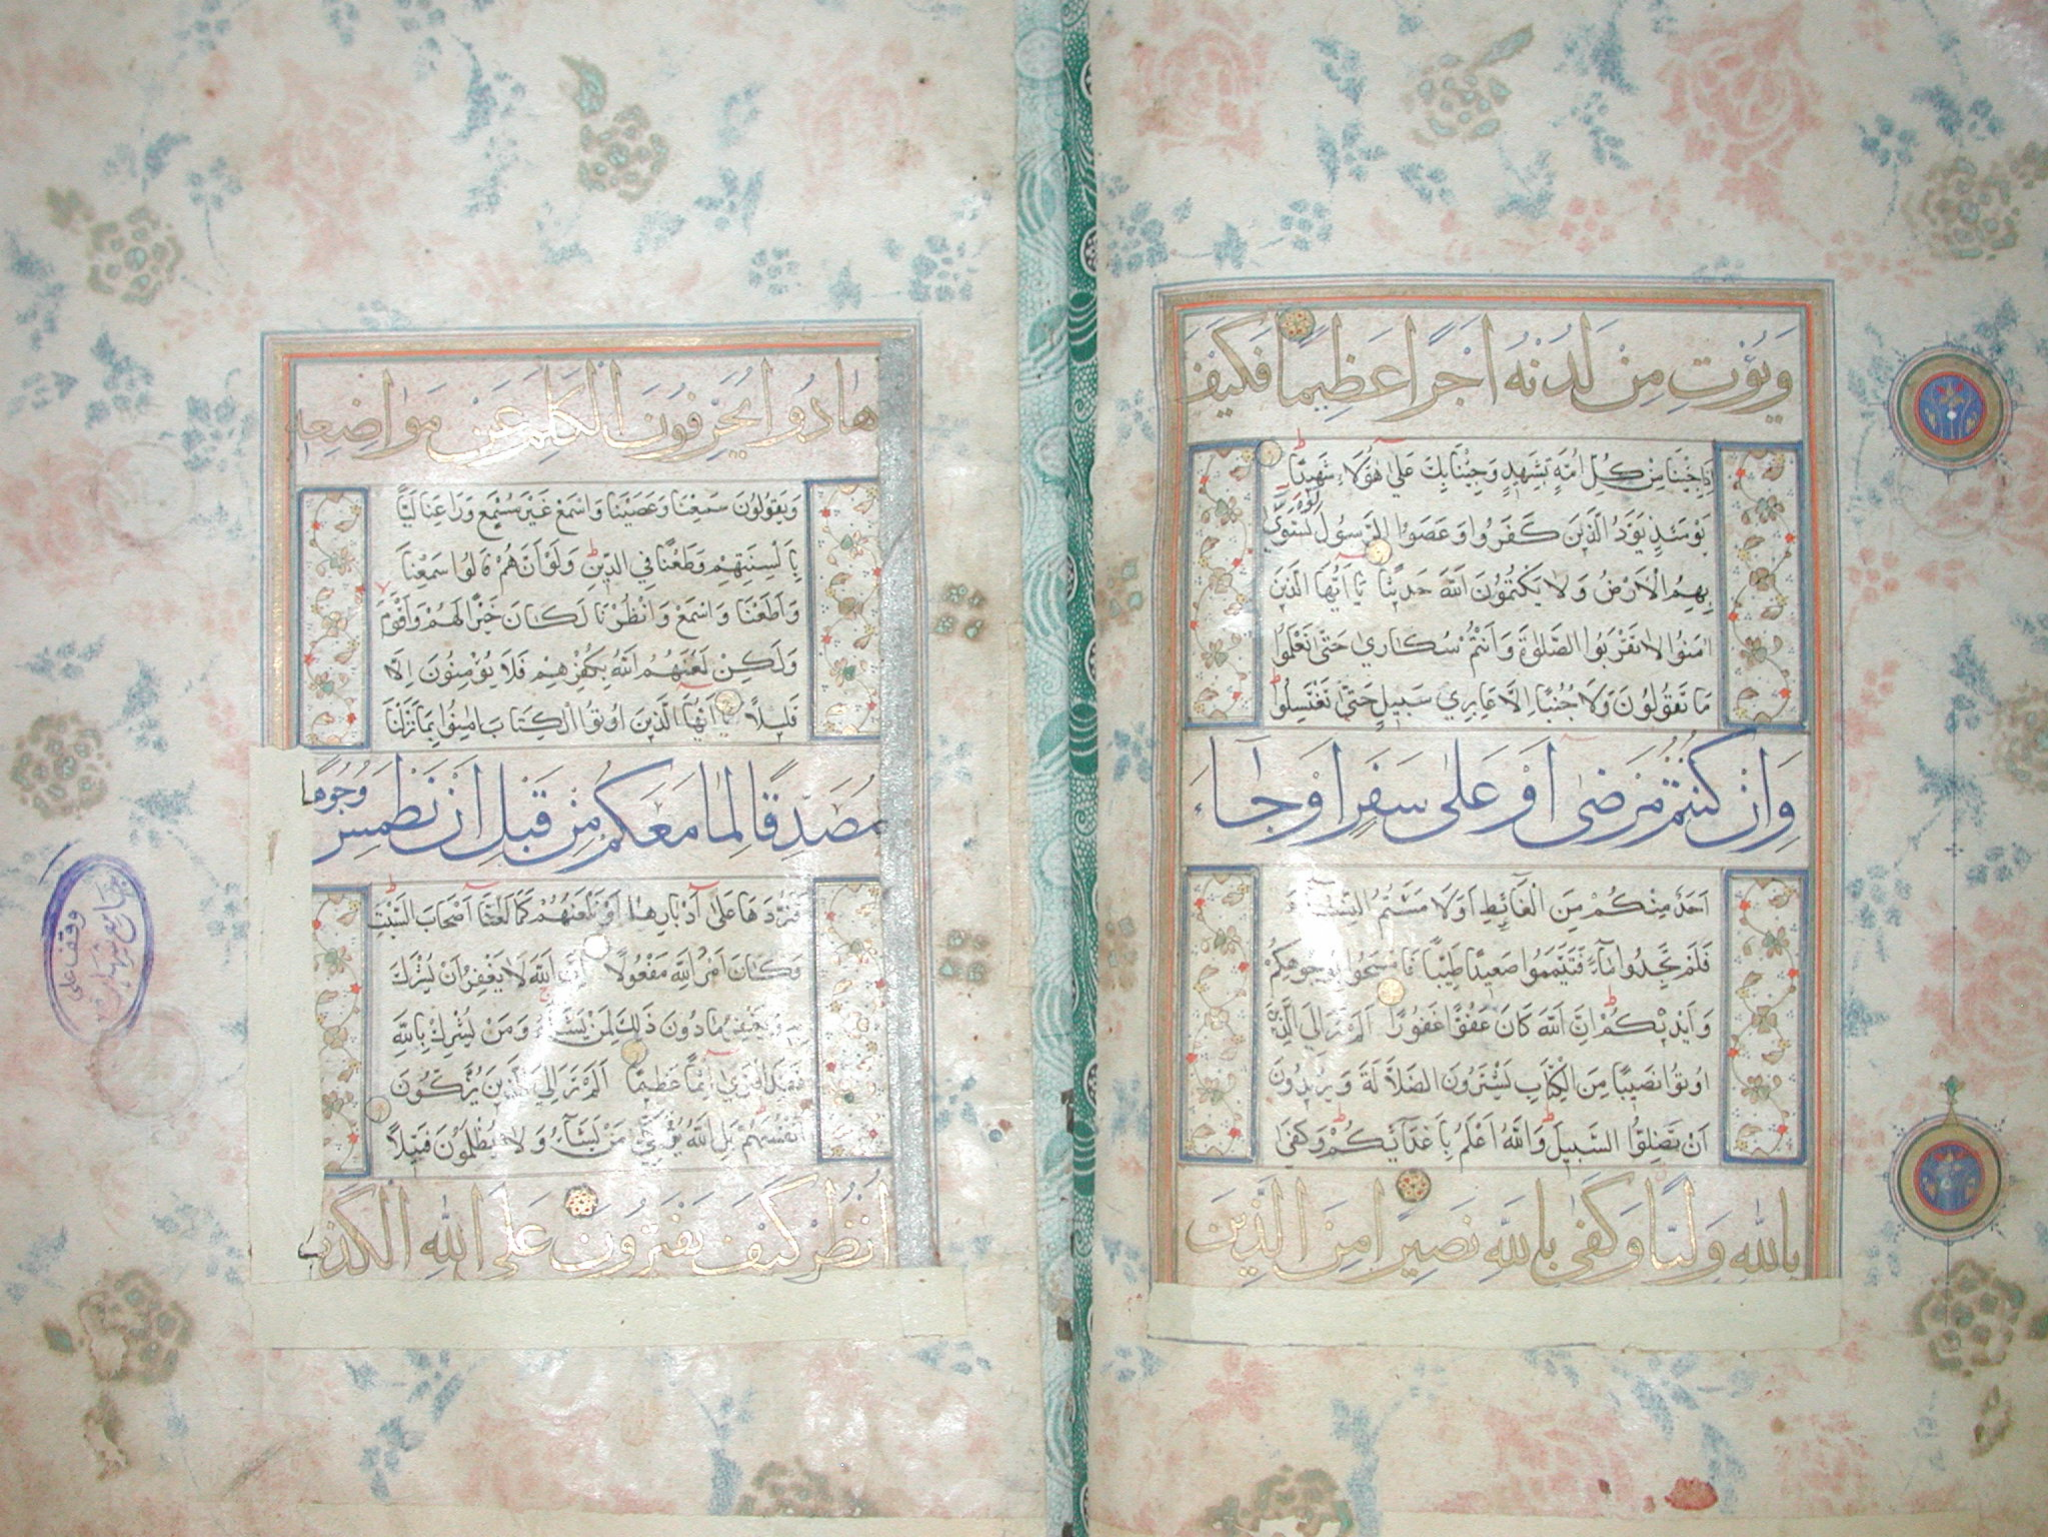 وَيُؤْتِ مِنْ لَدُنْهُ اَجْرًا عَظِيمًا فَكَيْفَ
اِذَا جِئْنَا مِنْ كُلِّ اُمَّةٍ بِشَهِيدٍ وَجِئْنَا بِكَ عَلٰى هٰؤُلَاءِ شَهِيدًا
يَوْمَئِذٍ يَوَدُّ الَّذِينَ كَفَرُوا وَعَصَوُا الرَّسُولَ لَوْ تُسَوّٰى
بِهِمُ الْاَرْضُ وَلَا يَكْتُمُونَ اللّٰهَ حَدِيثًا يَا اَيُّهَا الَّذِينَ
اٰمَنُوا لَا تَقْرَبُوا الصَّلٰوةَ وَاَنْتُمْ سُكَارٰي حَتّٰى تَعْلَمُوا
مَا تَقُولُونَ وَلَا جُنُبًا اِلَّا عَابِرِي سَبِيلٍ حَتّٰى تَغْتَسِلُوا
وَاِنْ كُنْتُمْ مَرْضٰى اَوْ عَلٰى سَفَرٍ اَوْ جَاءَ
اَحَدٌ مِنْكُمْ مِنَ الْغَائِطِ اَوْ لَامَسْتُمُ النِّسَاءَ
فَلَمْ تَجِدُوا مَاءً فَتَيَمَّمُوا صَعِيدًا طَيِّبًا فَامْسَحُوا بِوُجُوهِكُمْ
وَاَيْدِيكُمْ اِنَّ اللّٰهَ كَانَ عَفُوًّا غَفُورًا اَلَمْ تَرَ اِلَى الَّذِينَ
اُوتُوا نَصِيبًا مِنَ الْكِتَابِ يَشْتَرُونَ الضَّلَالَةَ وَيُرِيدُونَ
اَنْ تَضِلُّوا السَّبِيلَ وَاللّٰهُ اَعْلَمُ بِاَعْدَائِكُمْ وَكَفٰى
بِاللّٰهِ وَلِيًّا وَكَفٰى بِاللّٰهِ نَصِيرًا مِنَ الَّذِينَ
هَادُوا يُحَرِّفُونَ الْكَلِمَ عَنْ مَوَاضِعِهِ
وَيَقُولُونَ سَمِعْنَا وَعَصَيْنَا وَاسْمَعْ غَيْرَ مُسْمَعٍ وَرَاعِنَا لَيًّا
بِاَلْسِنَتِهِمْ وَطَعْنًا فِي الدِّينِ وَلَوْ اَنَّهُمْ قَالُوا سَمِعْنَا
وَاَطَعْنَا وَاسْمَعْ وَانْظُرْنَا لَكَانَ خَيْرًا لَهُمْ وَاَقْوَمَ
وَلٰكِنْ لَعَنَهُمُ اللّٰهُ بِكُفْرِهِمْ فَلَا يُؤْمِنُونَ اِلَّا
قَلِيلًا يَا اَيُّهَا الَّذِينَ اُوتُوا الْكِتَابَ اٰمِنُوا بِمَا نَزَّلْنَا
مُصَدِّقًا لِمَا مَعَكُمْ مِنْ قَبْلِ اَنْ نَطْمِسَ وُجُوهًا
فَنَرُدَّهَا عَلٰى اَدْبَارِهَا اَوْ نَلْعَنَهُمْ كَمَا لَعَنَّا اَصْحَابَ السَّبْتِ
وَكَانَ اَمْرُ اللّٰهِ مَفْعُولًا اِنَّ اللّٰهَ لَا يَغْفِرُ اَنْ يُشْرَكَ
بِهِ وَيَغْفِرُ مَا دُونَ ذٰلِكَ لِمَنْ يَشَاءُ وَمَنْ يُشْرِكْ بِاللّٰهِ
فَقَدِ افْتَرٰى اِثْمًا عَظِيمًا اَلَمْ تَرَ اِلَى الَّذِينَ يُزَكُّونَ
اَنْفُسَهُمْ بَلِ اللّٰهُ يُزَكِّي مَنْ يَشَاءُ وَلَا يُظْلَمُونَ فَتِيلًا
اُنْظُرْ كَيْفَ يَفْتَرُونَ عَلَى اللّٰهِ الْكَذِبَ
وقف على